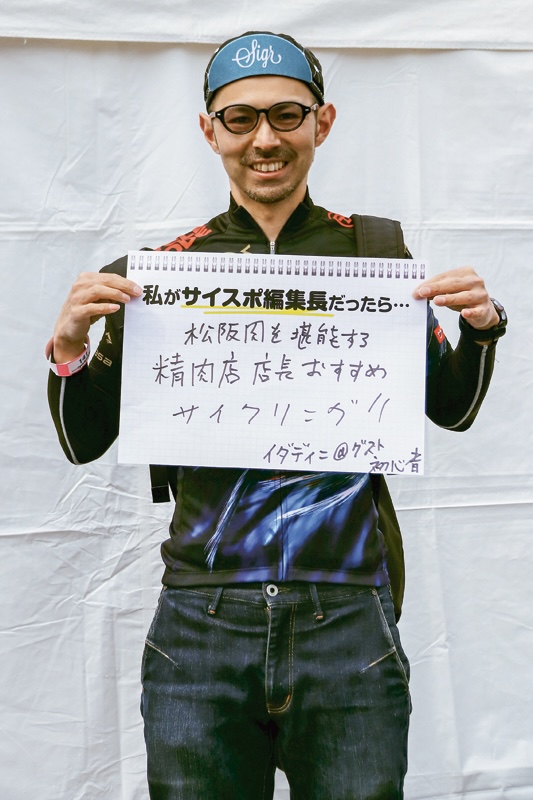 Sigr
私がサイスポ編集長だったら…
松阪肉を堪能する
精肉店店長おすすめ
サイクリング!!
イダディニ@ゲスト
初心者